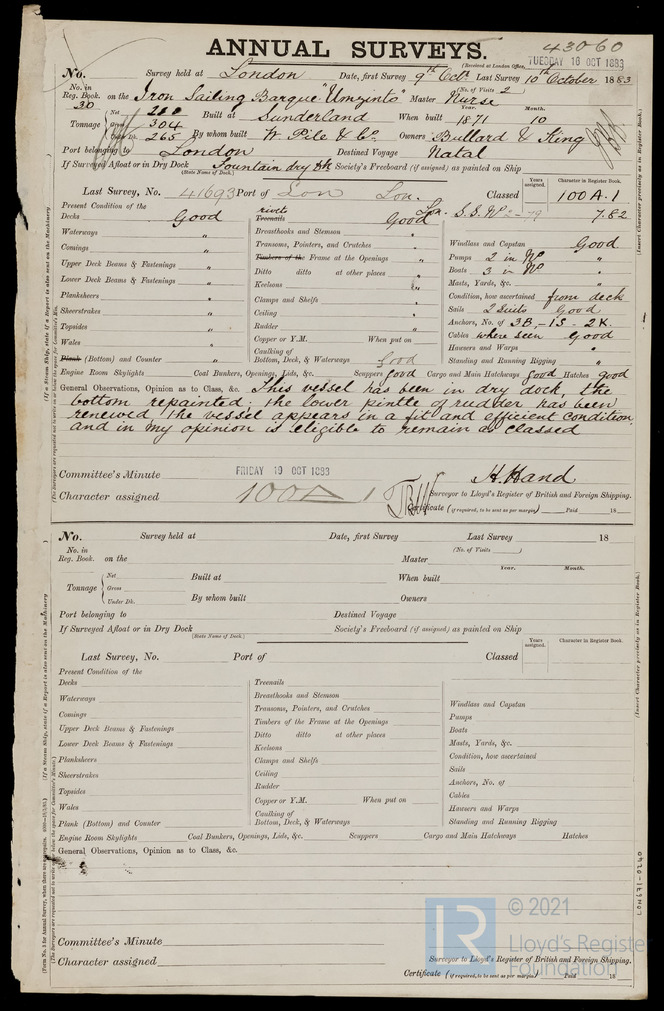 ANNUAL SURVEYS.
43060
(Received at London Office, TUESDAY 16 OCT 1883
No. Survey held at London Date, first Survey 9th Octr Last Survey 10th October 1883
No. in Reg. Book. 30 on the Iron Sailing Barque "Umzinto" Master Nurse (No. of Visits 2)
Tonnage Net Gross 304 Under Dk. 265 Built at Sunderland When built Year. 1871 Month. 10
By whom built W Pile & Co. Owners Bullard & King
Port belonging to London Destined Voyage Natal
If Surveyed Afloat or in Dry Dock Fountain dry dk (State Name of Dock.) Society's Freeboard (if assigned) as painted on Ship
Last Survey, No. 41693 Port of Lon Lon. Classed Years assigned. Character in Register Book. 100 A.1
Lon. S.S. No 2-79 7.82
Present Condition of the
Decks Good
Waterways "
Comings "
Upper Deck Beams & Fastenings "
Lower Deck Beams & Fastenings "
Planksheers "
Sheerstrakes "
Topsides "
Wales "
Plank (Bottom) and Counter "
rivets
Treenails Good
Breasthooks and Stemson "
Transoms, Pointers, and Crutches "
Timbers of the Frame at the Openings "
Ditto ditto at other places "
Keelsons "
Clamps and Shelfs "
Ceiling "
Rudder "
Copper or Y.M. When put on
Caulking of Bottom, Deck, & Waterways Good
Windlass and Capstan Good
Pumps 2 in No "
Boats 3 in No "
Masts, Yards, &c. "
Condition, how ascertained from deck
Sails 2 Suits Good
Anchors, No. of 3B.-1S-2K.
Cables where seen Good
Hawsers and Warps "
Standing and Running Rigging "
Engine Room Skylights Coal Bunkers, Openings, Lids, &c. Scuppers good Cargo and Main Hatchways good Hatches good
General Observations, Opinion as to Class, &c. This vessel has been in dry dock, the
bottom repainted; the lower pintle of rudder has been
renewed the vessel appears in a fit and efficient condition,
and in my opinion is eligible to remain as classed
Committee's Minute FRIDAY 19 OCT 1883
H. Hand
Character assigned 100A 1 Surveyor to Lloyd's Register of British and Foreign Shipping.
Certificate (if required, to be sent as per margin) Paid 18
No. Survey held at Date, first Survey Last Survey 18
No. in Reg. Book. on the Master (No. of Visits )
Tonnage Net Gross Under Dk. Built at When built Year. Month.
By whom built Owners
Port belonging to Destined Voyage
If Surveyed Afloat or in Dry Dock (State Name of Dock.) Society's Freeboard (if assigned) as painted on Ship
Last Survey, No. Port of Classed Years assigned. Character in Register Book.
Present Condition of the
Decks
Waterways
Comings
Upper Deck Beams & Fastenings
Lower Deck Beams & Fastenings
Planksheers
Sheerstrakes
Topsides
Wales
Plank (Bottom) and Counter
Treenails
Breasthooks and Stemson
Transoms, Pointers, and Crutches
Timbers of the Frame at the Openings
Ditto ditto at other places
Keelsons
Clamps and Shelfs
Ceiling
Rudder
Copper or Y.M. When put on
Caulking of Bottom, Deck, & Waterways
Windlass and Capstan
Pumps
Boats
Masts, Yards, &c.
Condition, how ascertained
Sails
Anchors, No. of
Cables
Hawsers and Warps
Standing and Running Rigging
Engine Room Skylights Coal Bunkers, Openings, Lids, &c. Scuppers Cargo and Main Hatchways Hatches
General Observations, Opinion as to Class, &c.
Committee's Minute
Character assigned
Surveyor to Lloyd's Register of British and Foreign Shipping.
Certificate (if required, to be sent as per margin) Paid 18
(Insert Character precisely as in Register Book.)
(Insert Character precisely as in Register Book.)
LON671-0240
LR
© 2021
Lloyd's Register
Foundation